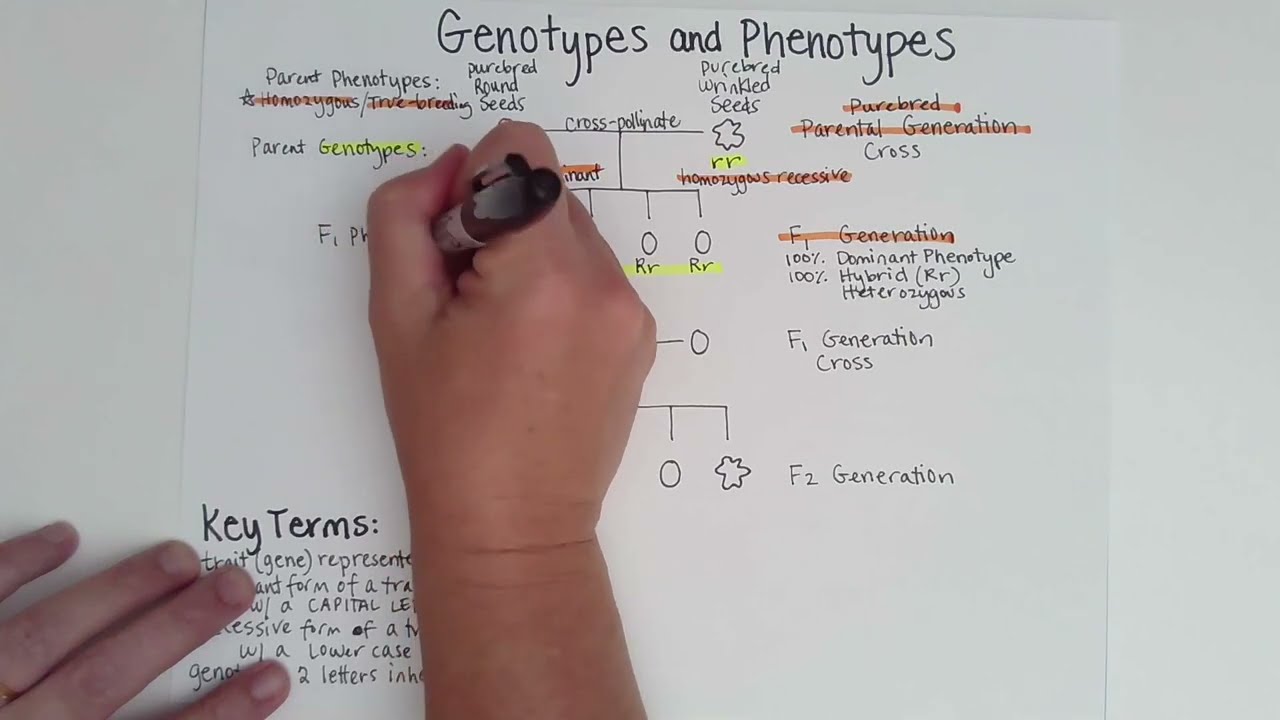 Genotypes and Phenotypes
Parent Phenotypes:
☆ Homozygous/True-breeding
purebred
Round
Seeds
purebred
Wrinkled
Seeds
cross-pollinate
Purebred
Parental Generation
Cross
Parent Genotypes:
rr
homozygous recessive
F1
Rr Rr
F1 Generation
100% Dominant Phenotype
100% Hybrid (Rr)
Heterozygous
F1 Generation
Cross
F2 Generation
Key Terms:
trait (gene)
form of a
w/ a CAPITAL
form of a
w/ a lower case
2 letters